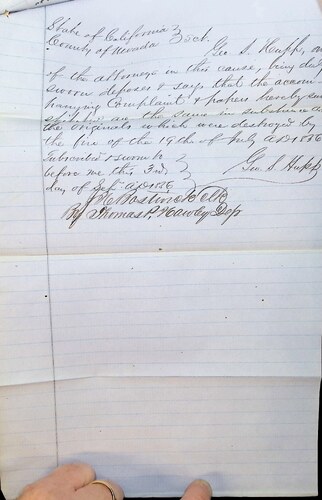 State of California }
County of Nevada } Sct.
Geo S. Hupp, one
of the attorneys in this cause, being duly
sworn deposes & says that the accom-
panying Complaint & papers hereby sub
are the same in substance as
the originals which were destroyed by
the fire of the 19th of July AD 1856
Subscribed & sworn to }
before me this 3rd }
day of Sept AD 1856
Geo. S. Hupp
Clk
By Thomas P. Hawley Dep